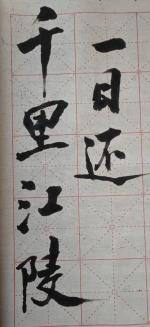 千里江陵
一日还